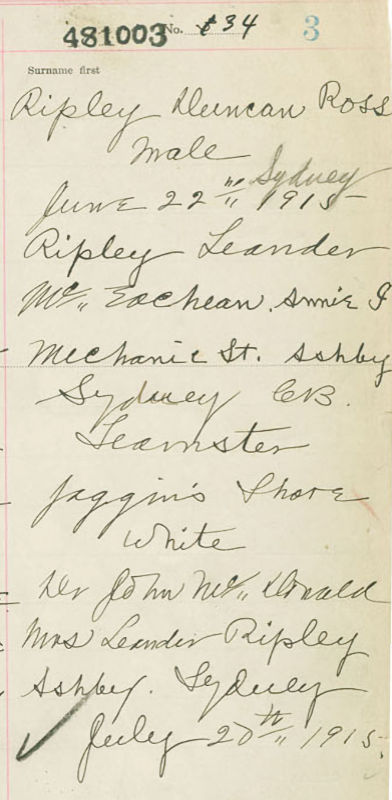 481003 No. 434 3
Surname first
Ripley Duncan Ross
Male
Sydney
June 22" 1915
Ripley Leander
Mc" Eachean. Annie J
Mechanic St. Ashby
Sydney CB.
Teamster
Joggin's Shore
White
Dr John Mc" Donald
Mrs Leander Ripley
Ashby. Sydney
July 20th" 1915.